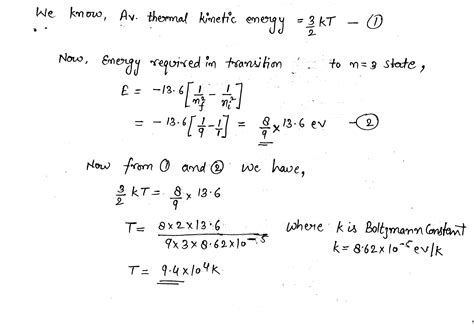 We know, Av. thermal kinetic energy = 3/2 kT — ①
Now, Energy required in transition to n=3 state,
E = -13.6 [1/n_f² - 1/n_i²]
= -13.6 [1/9 - 1/1] = 8/9 × 13.6 eV — ②
Now from ① and ② we have,
3/2 kT = 8/9 × 13.6
T = 8×2×13.6 / 9×3×8.62×10⁻⁵ where k is Boltzmann Constant
k = 8.62×10⁻⁵ eV/k
T = 9.4×10⁴ k